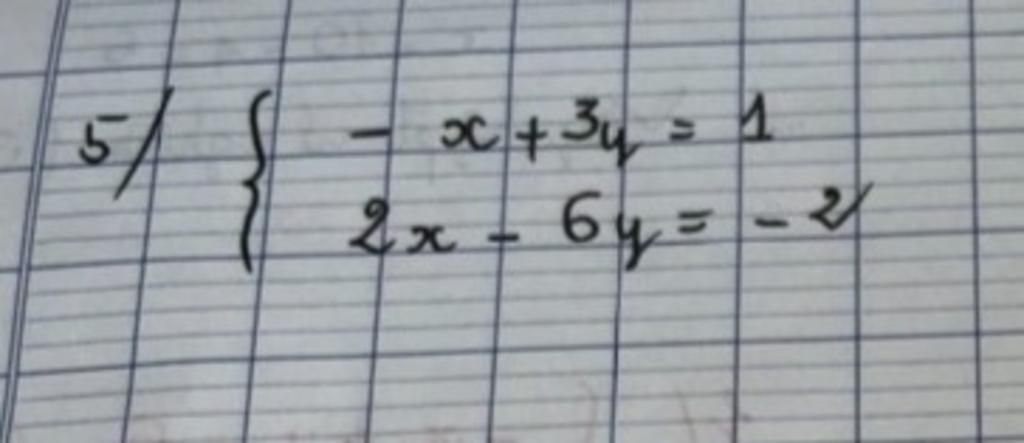 5/ { - x + 3y = 1
2x - 6y = - 2